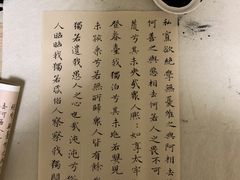 私寡欲絕學無憂唯之與阿相去
何善之與惡相去何若人之畏不可
兮其未央哉衆人熙如享太牢
登春臺我獨泊兮其未兆嬰兒
未孩兮若無所歸衆人皆有餘
獨若遺我愚人之心也哉沌兮
人昭昭我獨若俗人察察我獨悶
去何若人